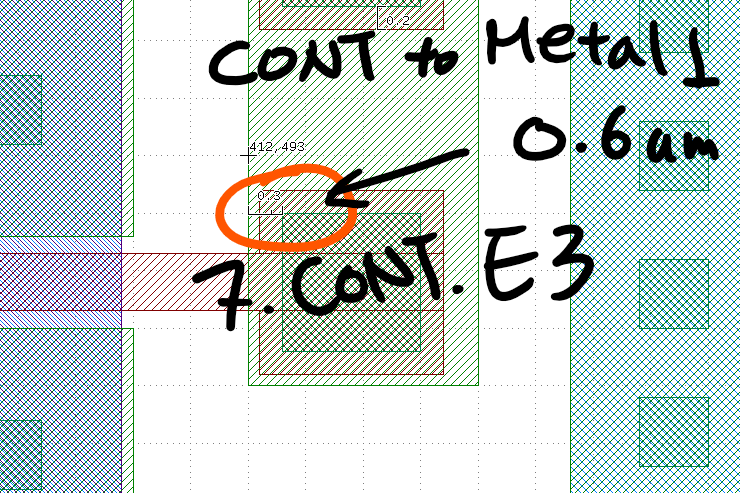 0.2
CONT to Metal1
0.6um
412,493
0.3
7.CONT.E3